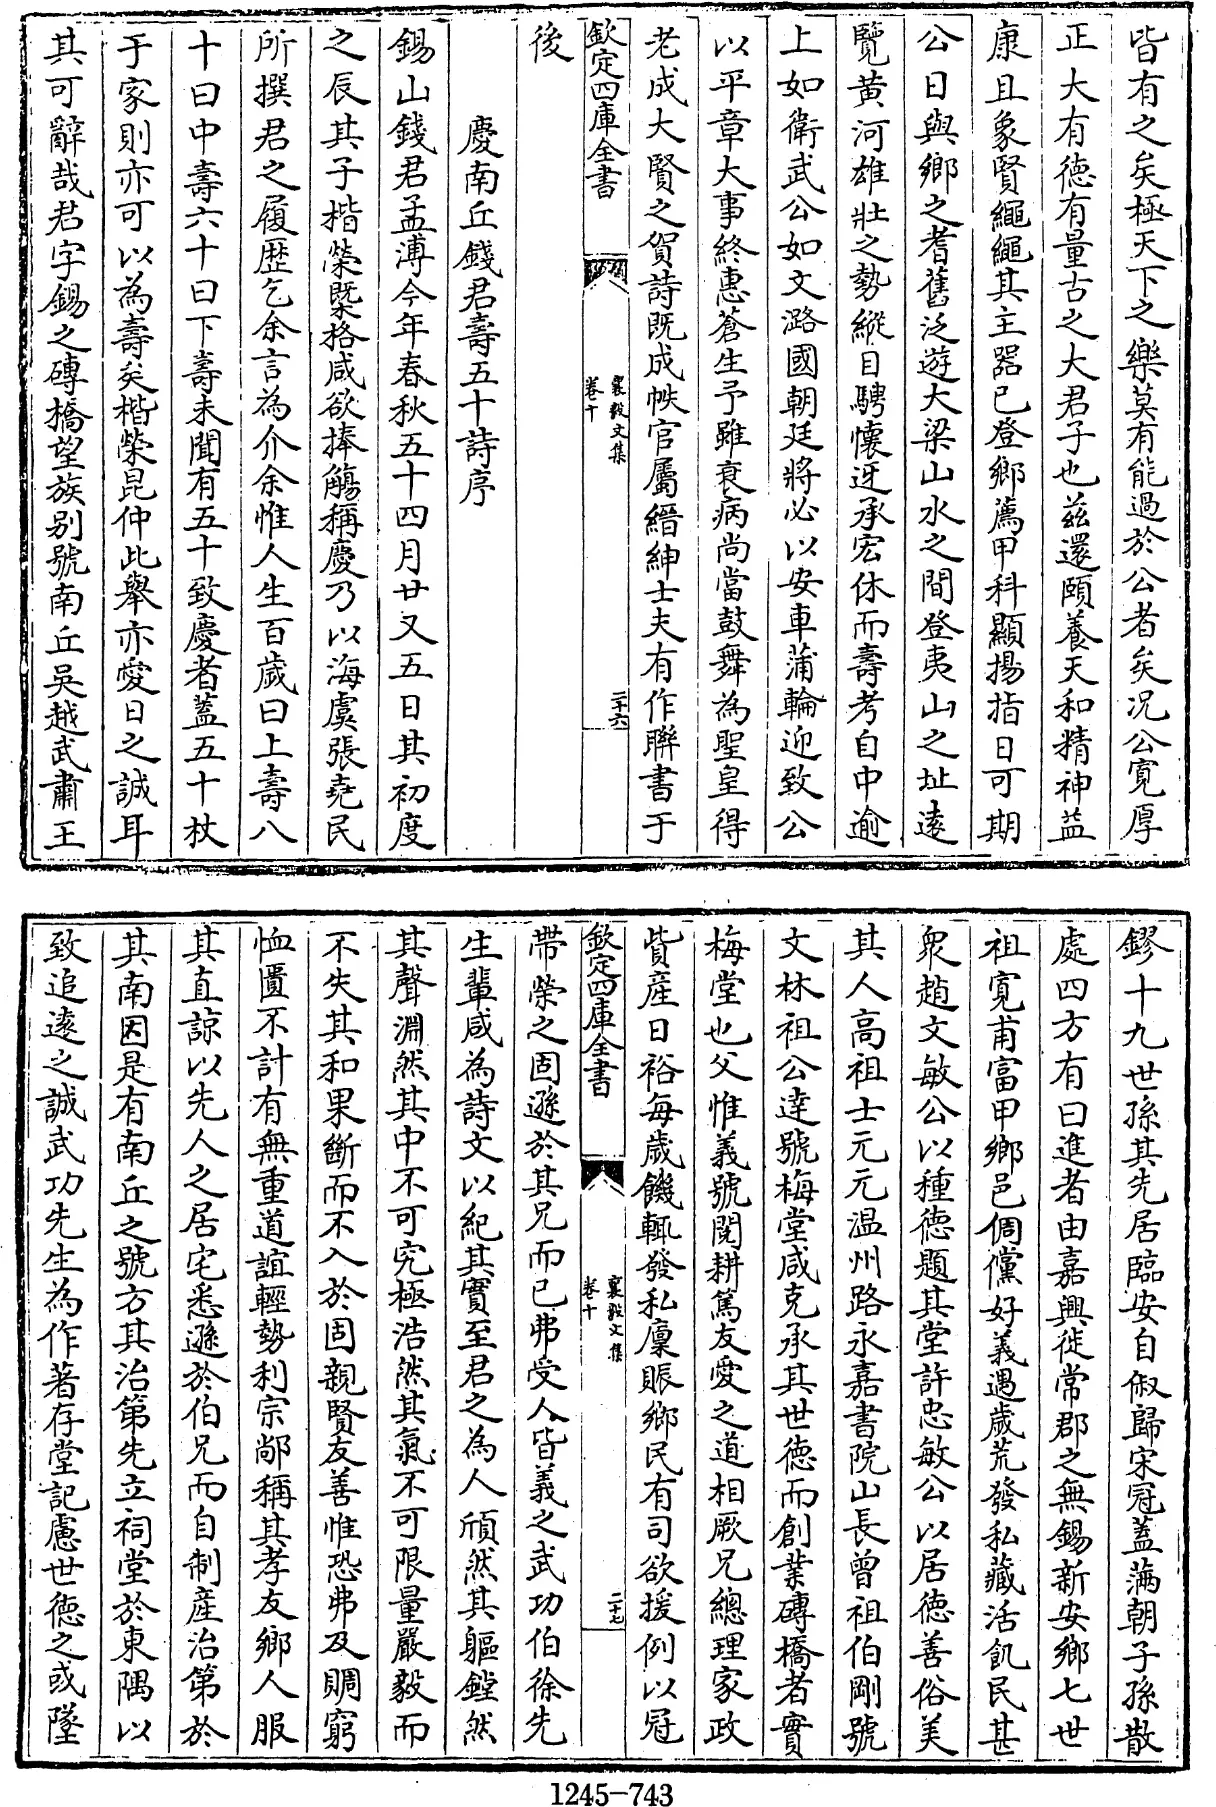 皆有之矣極天下之樂莫有能過於公者矣况公寛厚
正大有德有量古之大君子也兹還頤養天和精神益
康且象賢繩繩其主器已登鄉薦甲科顯揚指日可期
公日與鄉之耆舊泛遊大梁山水之間登夷山之址遠
覽黄河雄壯之勢縱目騁懷迓承宏休而壽考自中逾
上如衛武公如文潞國朝廷將必以安車蒲輪迎致公
以平章大事終惠蒼生予雖衰病尚當鼓舞為聖皇得
老成大賢之賀詩既成帙官屬縉紳士夫有作聯書于
欽定四庫全書
襄毅文集
卷十
二十六
後
慶南丘錢君壽五十詩序
錫山錢君孟溥今年春秋五十四月廿又五日其初度
之辰其子楷榮槩格咸欲捧觴稱慶乃以海虞張堯民
所撰君之履歴乞余言為介余惟人生百歲曰上壽八
十曰中壽六十曰下壽未聞有五十致慶者蓋五十杖
于家則亦可以為壽矣楷榮昆仲此舉亦愛日之誠耳
其可辭哉君字錫之磚橋望族别號南丘吳越武肅王
鏐十九世孫其先居臨安自俶歸宋冠蓋滿朝子孫散
處四方有曰進者由嘉興徙常郡之無錫新安鄉七世
祖寛甫富甲鄉邑倜儻好義遇歲荒發私藏活飢民甚
衆趙文敏公以種德題其堂許忠敏公以居德善俗美
其人高祖士元元温州路永嘉書院山長曾祖伯剛號
文林祖公達號梅堂咸克承其世德而創業磚橋者實
梅堂也父惟義號閱耕篤友愛之道相厥兄總理家政
貲産日裕每歲饑輒發私廩賑鄉民有司欲援例以冠
欽定四庫全書
襄毅文集
卷十
二十七
帶榮之固遜於其兄而已弗受人皆義之武功伯徐先
生輩咸為詩文以紀其實至君之為人頎然其軀鏜然
其聲淵然其中不可究極浩然其氣不可限量嚴毅而
不失其和果斷而不入於固親賢友善惟恐弗及賙窮
恤匱不計有無重道誼輕勢利宗鄗稱其孝友鄉人服
其直諒以先人之居宅悉遜於伯兄而自制産治第於
其南因是有南丘之號方其治第先立祠堂於東隅以
致追遠之誠武功先生為作著存堂記慮世德之或墜
1245-743